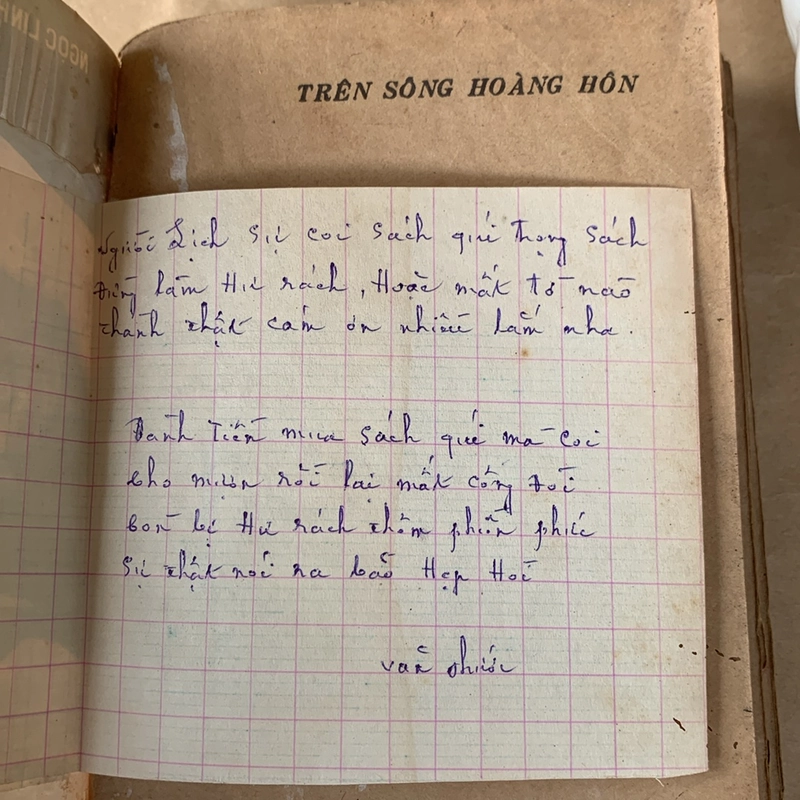 NGỌC LINH
TRÊN SÔNG HOÀNG HÔN
Người Lịch Sự coi sách quí Trọng sách
Đừng làm Hư rách, Hoặc mất tờ nào
thành thật cám ơn nhiều lắm nha.
Dành Tiền mua sách quí mà coi
cho mượn rồi lại mất công đòi
còn bị Hư rách thêm phiền phức
Sự thật nói ra bảo Hẹp Hòi
văn phước